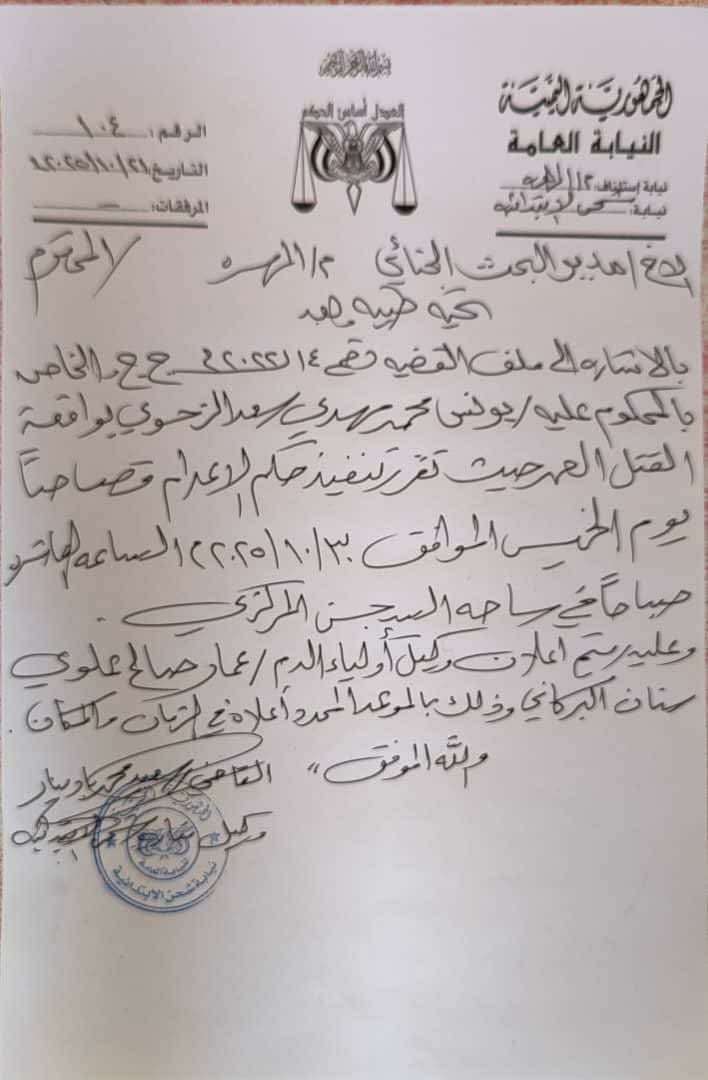 بسم الله الرحمن الرحيم
الجمهورية اليمنية
النيابة العامة
نيابة إستئناف: م/ المهره
نيابة: شحن الإبتدائيه
العدل أساس الحكم
الرقم: ١٠٤
التاريخ: ٢٠٢٥/١٠/٢٦م
المرفقات: ــ
الاخ / مدير البحث الجنائي م/ المهره المحترم
تحيه طيبه وبعد
بالاشاره الى ملف القضيه رقم ١٤ لـ ٢٠٢٢م ج.ج والخاص
بالمحكوم عليه / يونس محمد مهدي سعد الزحوي بواقعة
القتل العمد حيث تقرر تنفيذ حكم الاعدام قصاصاً
يوم الخميس الموافق ٢٠٢٥/١٠/٣٠م الساعه العاشره
صباحاً في ساحه السجن المركزي .
وعليه يتم اعلان وكيل أولياء الدم / عمار صالح علوي
سنان البركاني وذلك بالموعد المحدد أعلاه في الزمان والمكان .
والله الموفق ،،
القاضي / سعيد محمد
وكيل نيابة شحن الابتدائيه
النيابة العامة
نيابة شحن الابتدائية